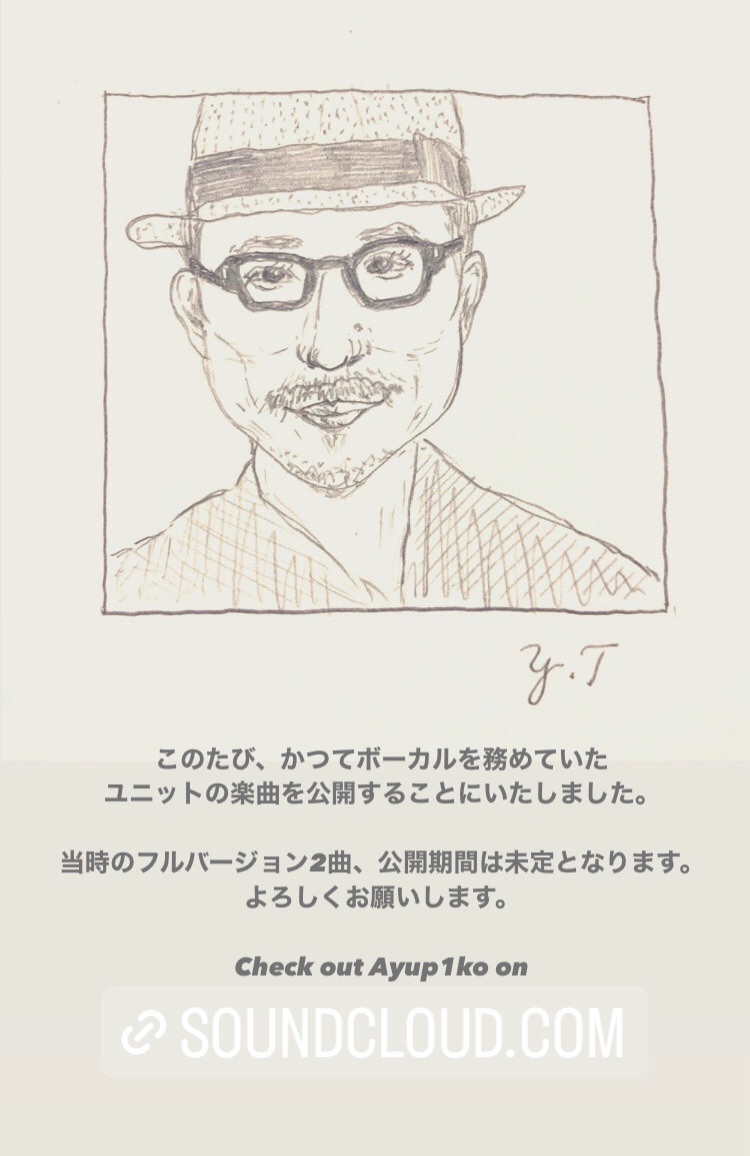 y.T
このたび、かつてボーカルを務めていた
ユニットの楽曲を公開することにいたしました。
当時のフルバージョン2曲、公開期間は未定となります。
よろしくお願いします。
Check out Ayup1ko on
SOUNDCLOUD.COM